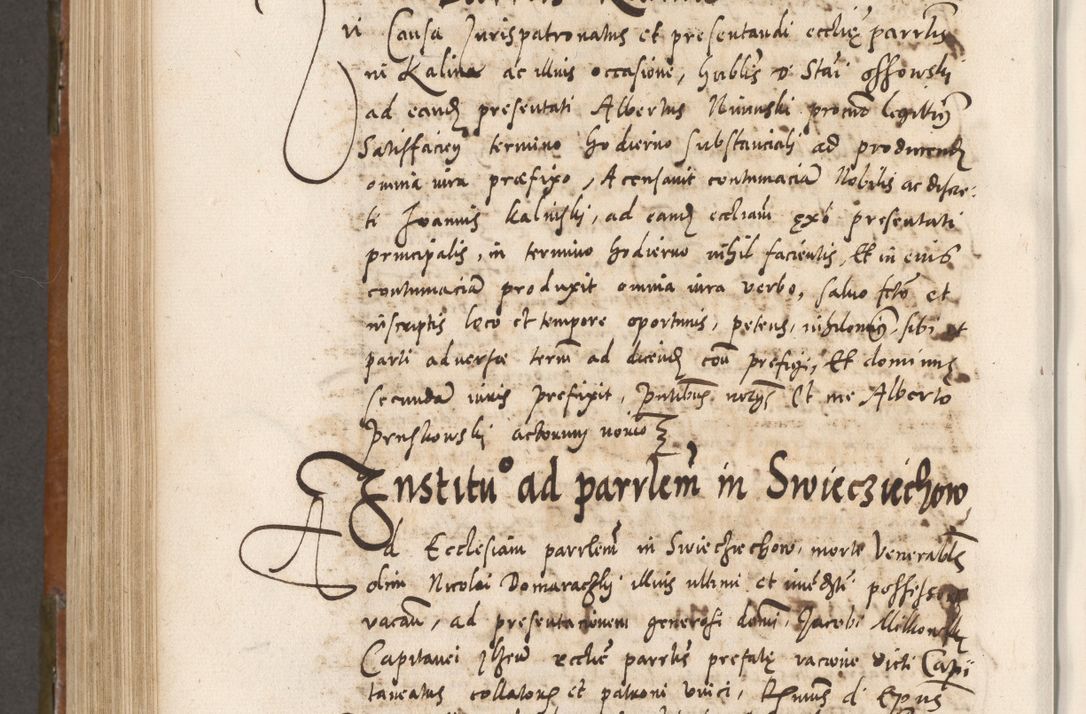 In Causa Jurispatronatus et presentandi ecclie parrlis
in Kalina ac illius occasione, Hnblis d Stai Ossowski
ad eand presentati Albertus procur legittim
Satisfaciens termino hodierno substanciali ad producend
omnia iura præfixo, Accusavit contumaciã Nobilis ac discre-
ti Joannis Kaliński, ad eand eccliam presentati
principalis, in termino hodierno nihil facientis, Et in eius
contumaciã produxit omnia iura verbo, salvo scto et
inscriptis loco et tempore oportunis, petens, nihilomin sibi et
parti adversæ term ad dicend con prefigi, Et dominus
secundã iuris prefixit, pntibus Et me Alberto
Pruskowski actorum notrio
Institu° ad parrlem in Swieczichow
Ad Ecclesiam parrlem in Swieczichow, morte Venerablis
olim Nicolai Domaraczki illius ultimi et possessoris
vacan, ad presentacionem generosi domi Jacobi
Capitanei ecclie parrlis prefate racione dicti Capi
taneatus collatoris et patroni unici, Rmus d Epus